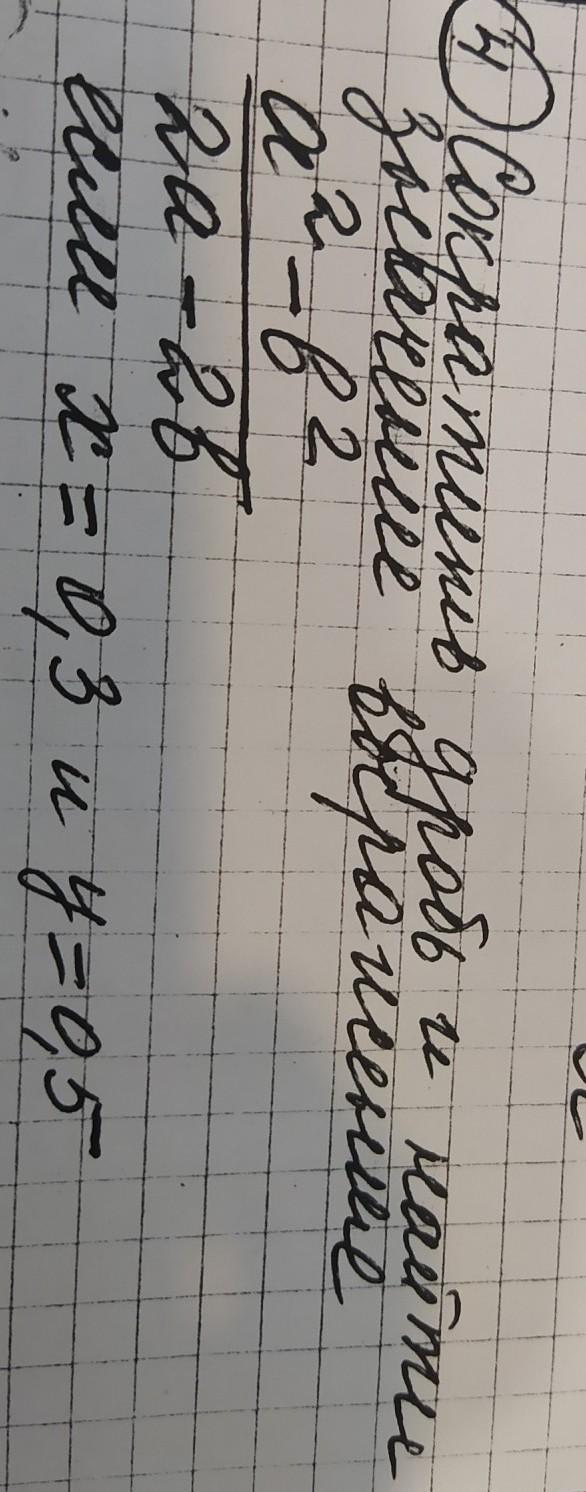 4 Сократить дробь и найти
значение выражение
a² - b²
2a - 2b
если x = 0,3 и y = 0,5